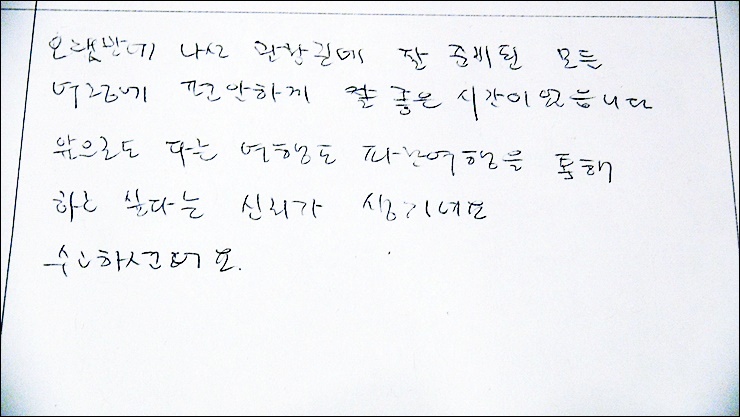 오랜만에 나선 관광길에 잘 준비된 모든
여정에 편안하게 잘 좋은 시간이었습니다
앞으로도 다른 여행도 파란여행을 통해
하고 싶다는 신뢰가 생기네요
수고하셨어요.